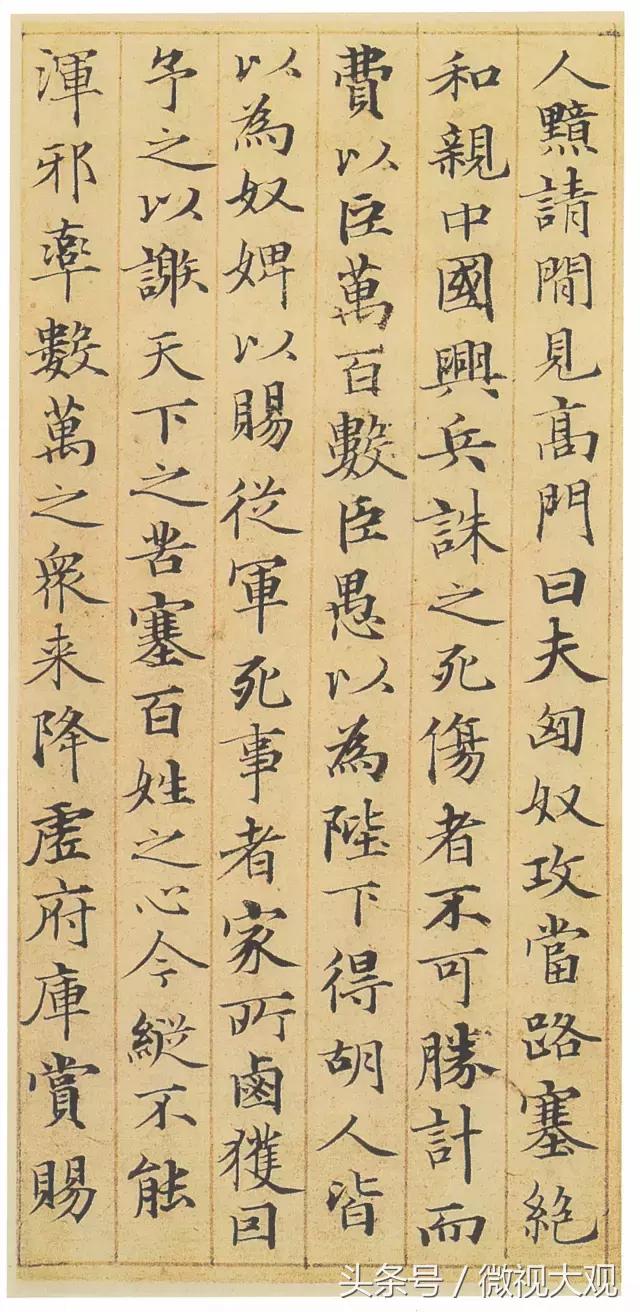 人黯請閒見髙門曰夫匈奴攻當路塞絶
和親中國興兵誅之死傷者不可勝計而
費以巨萬百數臣愚以為陛下得胡人皆
以為奴婢以賜從軍死事者家所鹵獲囙
予之以謝天下之苦塞百姓之心今縱不能
渾邪率數萬之衆来降虛府庫賞賜
头条号／微视大观